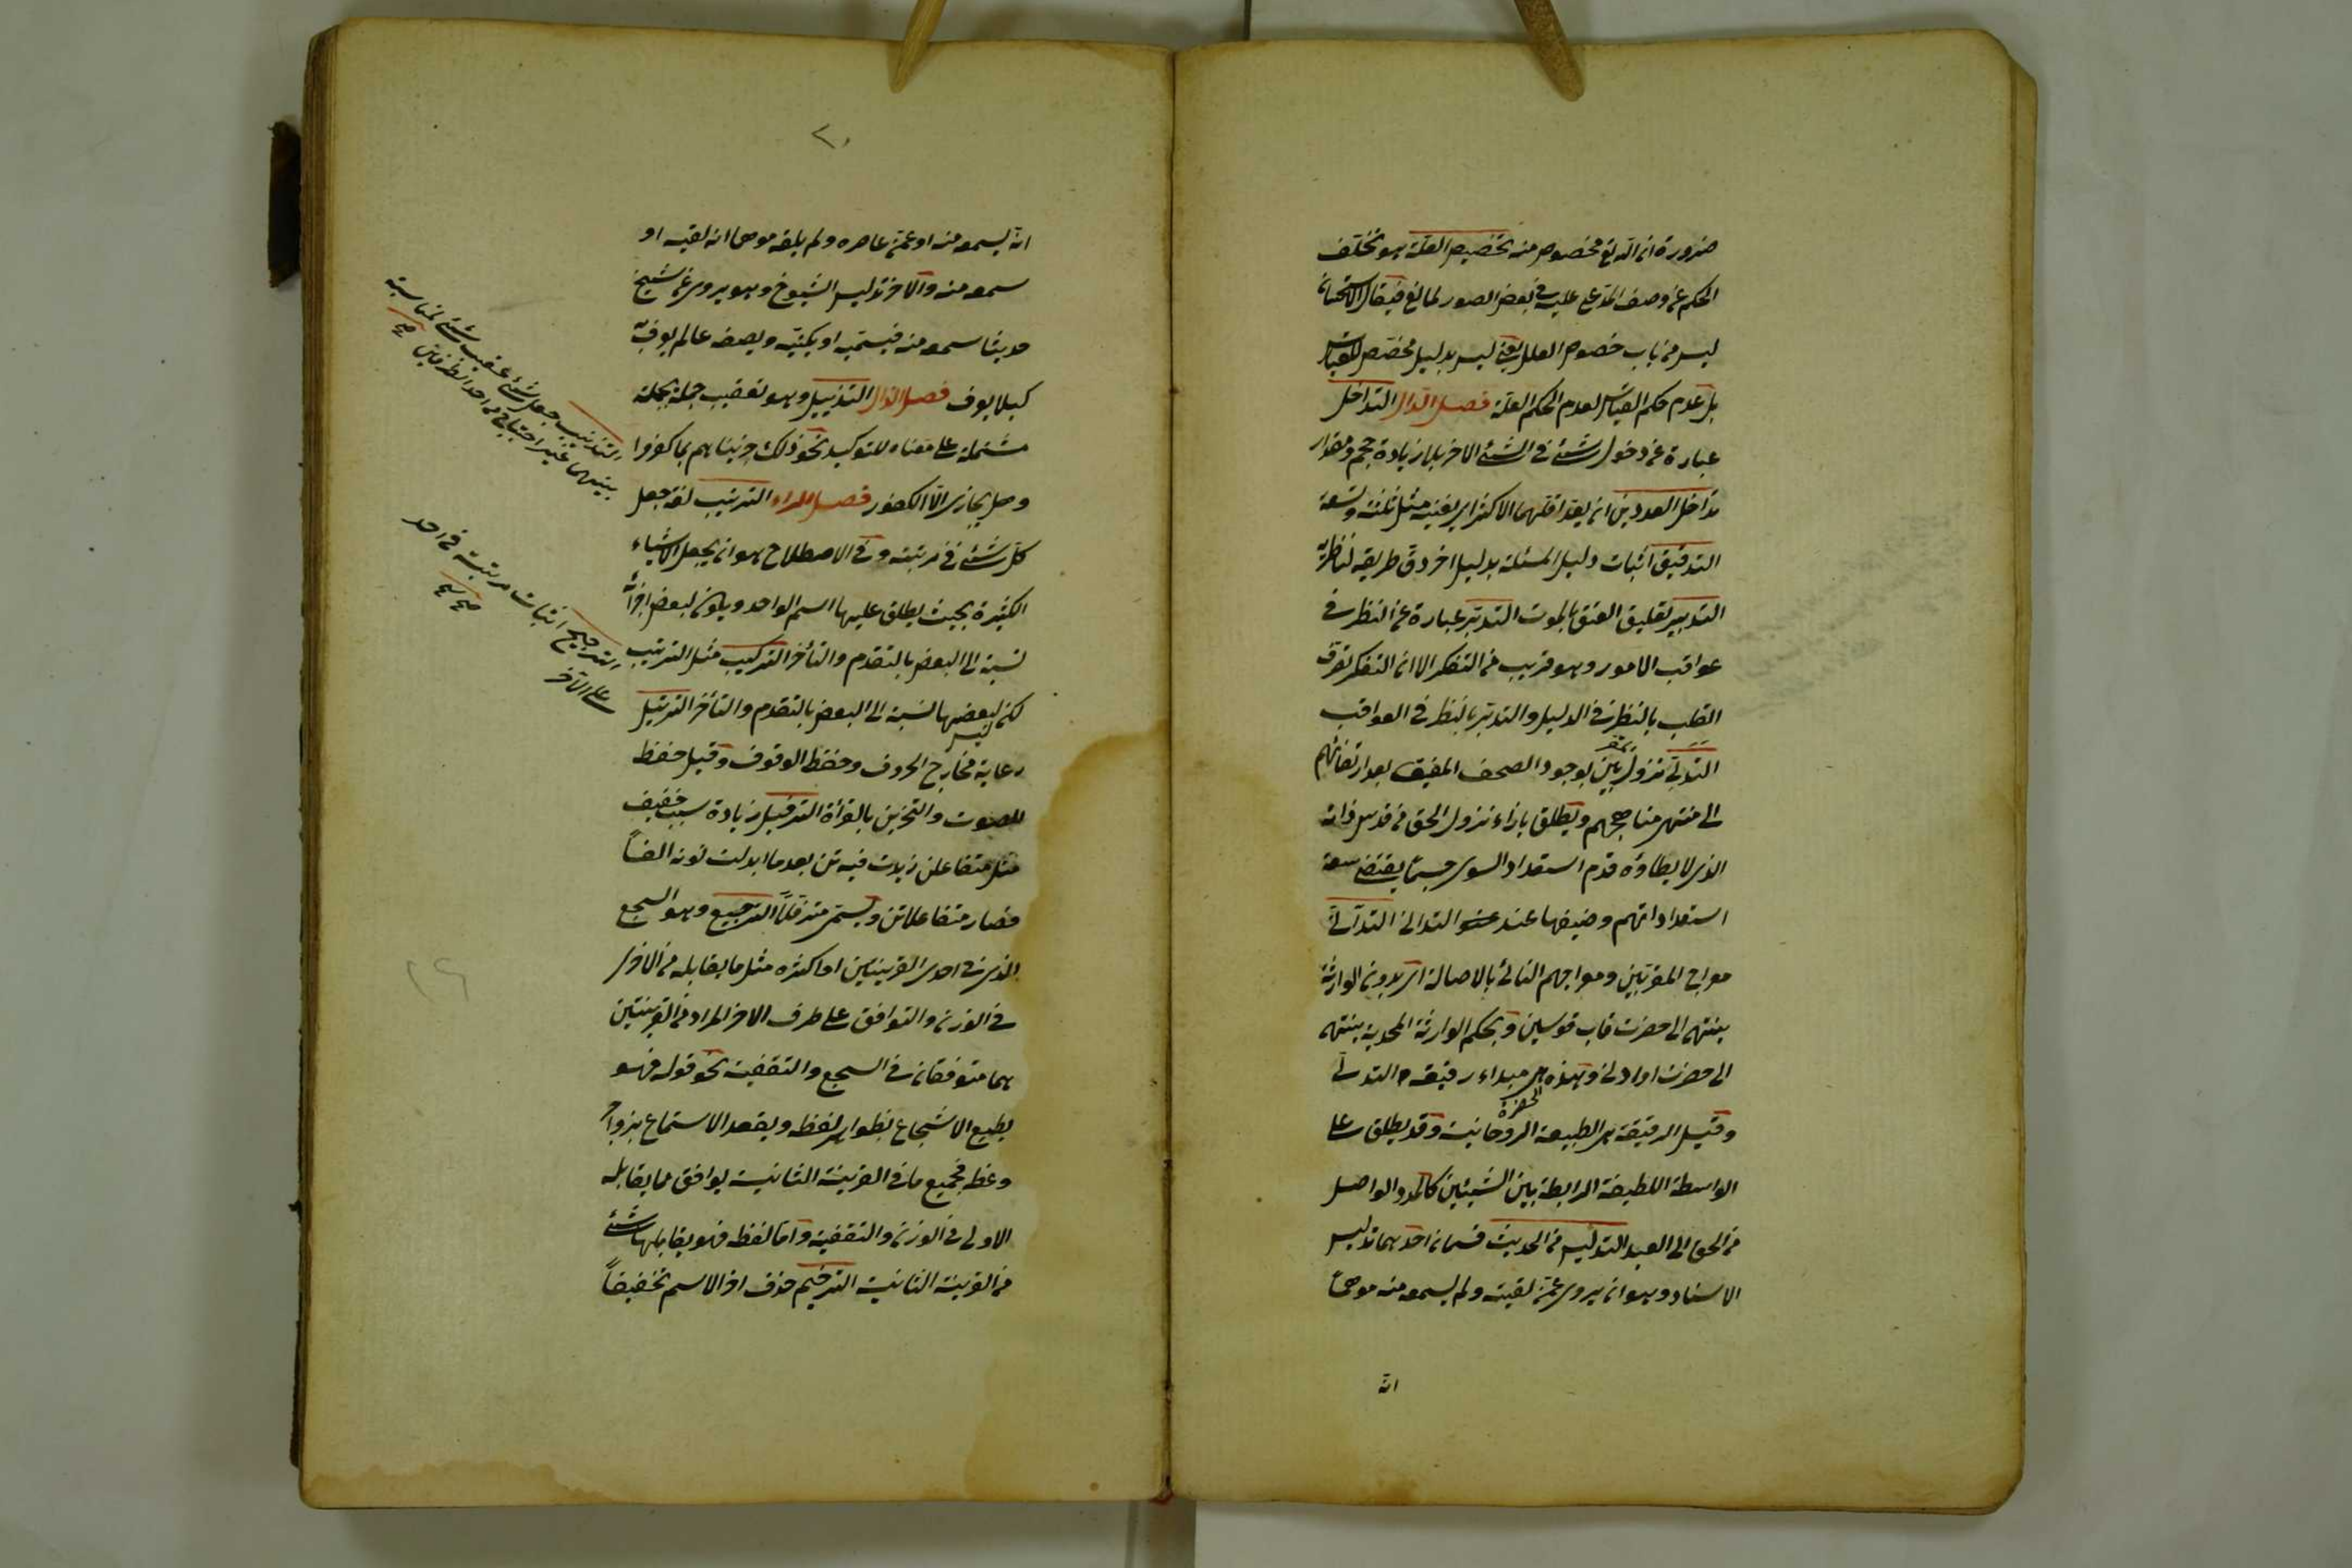 ضرورة ان الله تع مخصوص منه تخصيص العلة هو تخلف
الحكم عن وصف المدعى عليه في بعض الصور لمانع فيقال الاستحسان
ليس من باب خصوص العلل يعني ليس بدليل مخصص للقياس
بل عدم حكم القياس لعدم الحكم العلة فصل الدال التداخل
عبارة عن دخول شئ في الشئ الاخر بلا زيادة حجم ومقدار
تداخل العددين ان يعد اقلهما الاكثر اى يفنيه مثل ثلثة وتسعة
التدقيق اثبات دليل المسئلة بدليل اخر دق طريقه لناظريه
التدبير تعليق العتق بالموت التدبر عبارة عن النظر في
عواقب الامور وهو قريب من التفكر الا ان التفكر تصرف
القلب بالنظر في الدليل والتدبر بالنظر في العواقب
التدلى نزول المقربين بوجود الصحف المفيق بعد ارتقائهم
الى منتهى مناهجهم ويطلق بازاء نزول الحق من قدس ذاته
الذى لا يطاؤه قدم استعداد السوى حسبما يقتضى سعة
استعداداتهم وضيقها عند التدانى التدانى
معراج المقربين ومعراجهم الغائى بالاصالة اى بدون الوارثة
ينتهى الى حضرت قاب قوسين وبحكم الوارثة المحمدية ينتهى
الى حضرت او ادنى وهذه الحضرة هى مبداء رقيقة التدانى
وقيل الرقيقة هى الطبيعة الروحانية وقد يطلق على
الواسطة اللطيفة الرابطة بين الشيئين كالمدد الواصل
من الحق الى العبد التدليس من الحديث قسمان احدهما تدليس
الاسناد وهو ان يروى عمن لقيه ولم يسمعه منه موهما
انه
٢٠
انه يسمعه منه او عمن عاصره ولم يلقه موهما انه لقيه او
سمعه منه والآخر تدليس الشيوخ وهو يروى عن شيخ
حديثا سمعه منه فيسميه او يكنيه ويصفه عالم يعرف به
كيلا يعرف فصل الذال التذييل وهو تعقيب جملة بجملة
مشتملة على معناه للتوكيد نحو ذلك جزيناهم بما كفروا
وهل يجازى الا الكفور فصل الراء الترتيب لغة جعل
كل شئ في مرتبته وفي الاصطلاح هو ان يجعل الاشياء
الكثيرة بحيث يطلق عليها اسم الواحد ويكون لبعض اجزائه
نسبة الى البعض بالتقدم والتأخر التركيب مثل الترتيب
لكن ليس لبعضها نسبة الى البعض بالتقدم والتأخر الترتيل
رعاية مخارج الحروف وحفظ الوقوف وقيل خفض
للصوت والتحزين بالقرأة الترفيل زيادة سبب خفيف
مثل متفاعلن زيدت فيه تن بعدما ابدلت نونه الفاً
فصار متفاعلاتن ويسمى مترفلاً الترصيع وهو السجع
الذى في احدى القرينتين او اكثره مثل ما يقابله من الاخرى
في الوزن والتوافق على طرف الاخر المراد من القرينتين
هما متوفقان في السجع والتقفية نحو قوله فهو
يطبع الاسجاع بظواهر لفظه ويقصد الاسماع بزواجر
وعظه فجميع ما في القرينة الثانية يوافق ما يقابله
الاولى في الوزن والتقفية واما لفظه فهو يقابلها شئ
من القرينة الثانية الترخيم حذف اخر الاسم تخفيفاً
التذنيب جعل شئ عقيب شئ لمناسبة
بينهما غير احتياج من احد الطرفين صح
الترجيح اثبات مرتبة في احد
على الآخر
صح